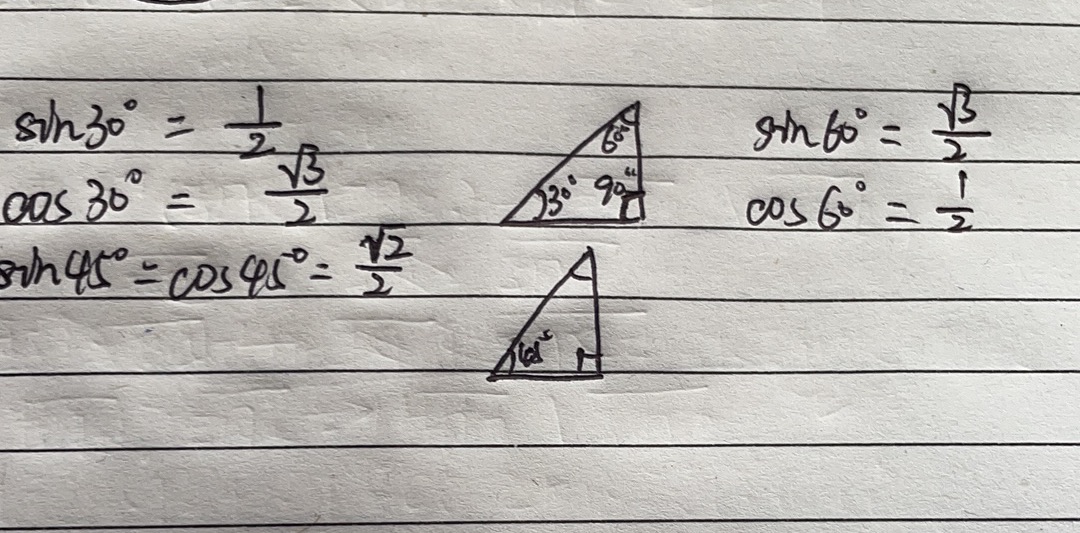 sin30° = 1/2
cos30° = √3/2
sin45° = cos45° = √2/2
60°
30° 90°
sin60° = √3/2
cos60° = 1/2